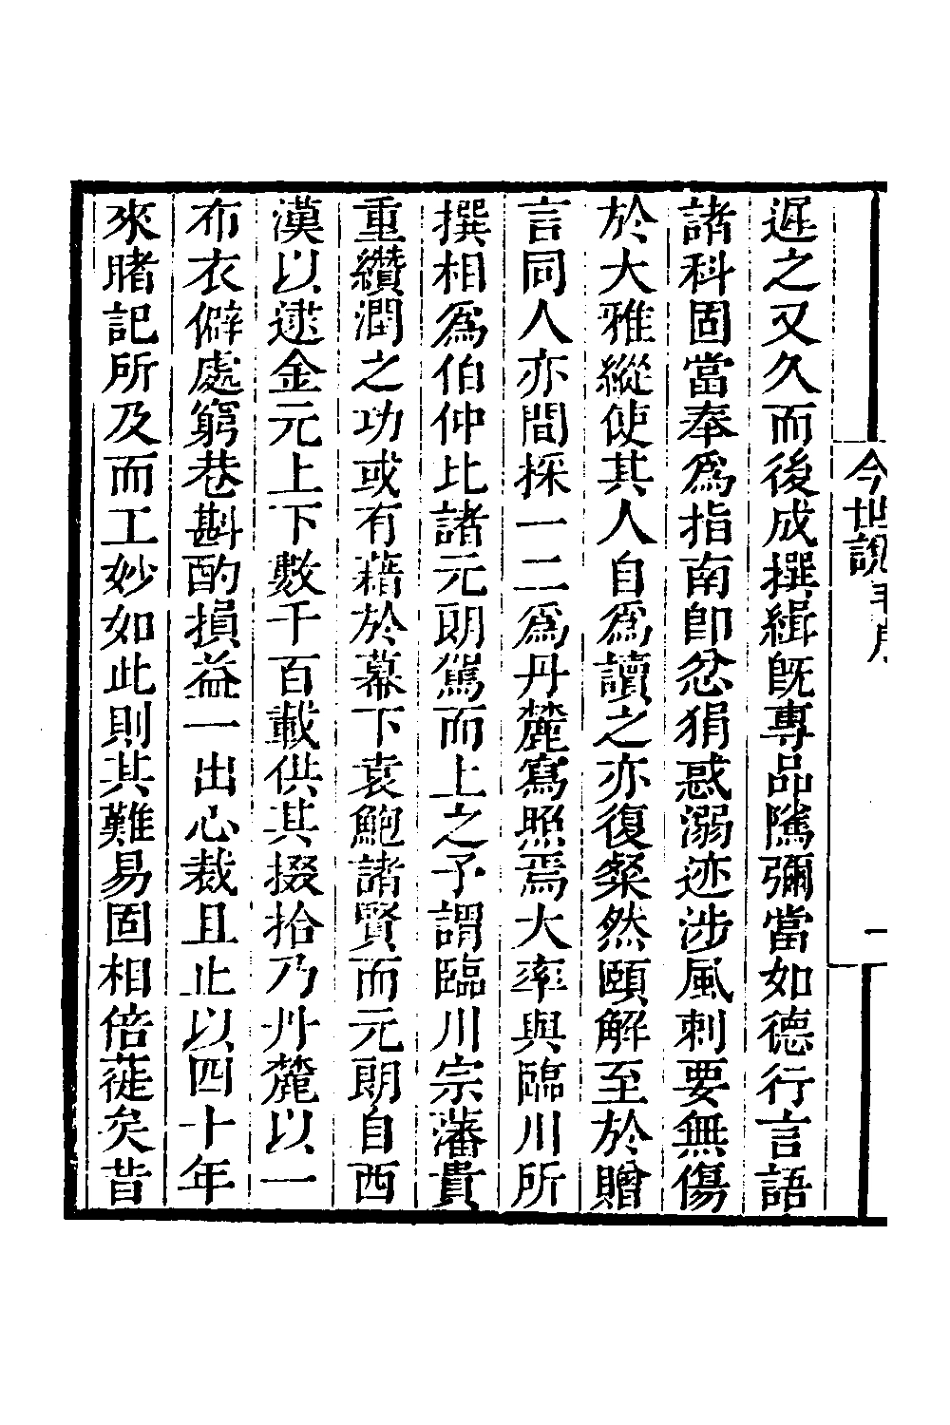 今世說
一
遲之又久而後成撰緝旣專品隲彌當如德行言語
諸科固當奉爲指南卽忿狷惑溺迹涉風刺要無傷
於大雅縱使其人自爲讀之亦復粲然頤解至於贈
言同人亦間採一二爲丹麓寫照焉大率與臨川所
撰相爲伯仲比諸元朗駕而上之予謂臨川宗藩貴
重纘潤之功或有藉於幕下袁鮑諸賢而元朗自西
漢以逮金元上下數千百載供其掇拾乃丹麓以一
布衣僻處窮巷斟酌損益一出心裁且止以四十年
來睹記所及而工妙如此則其難易固相倍蓰矣昔